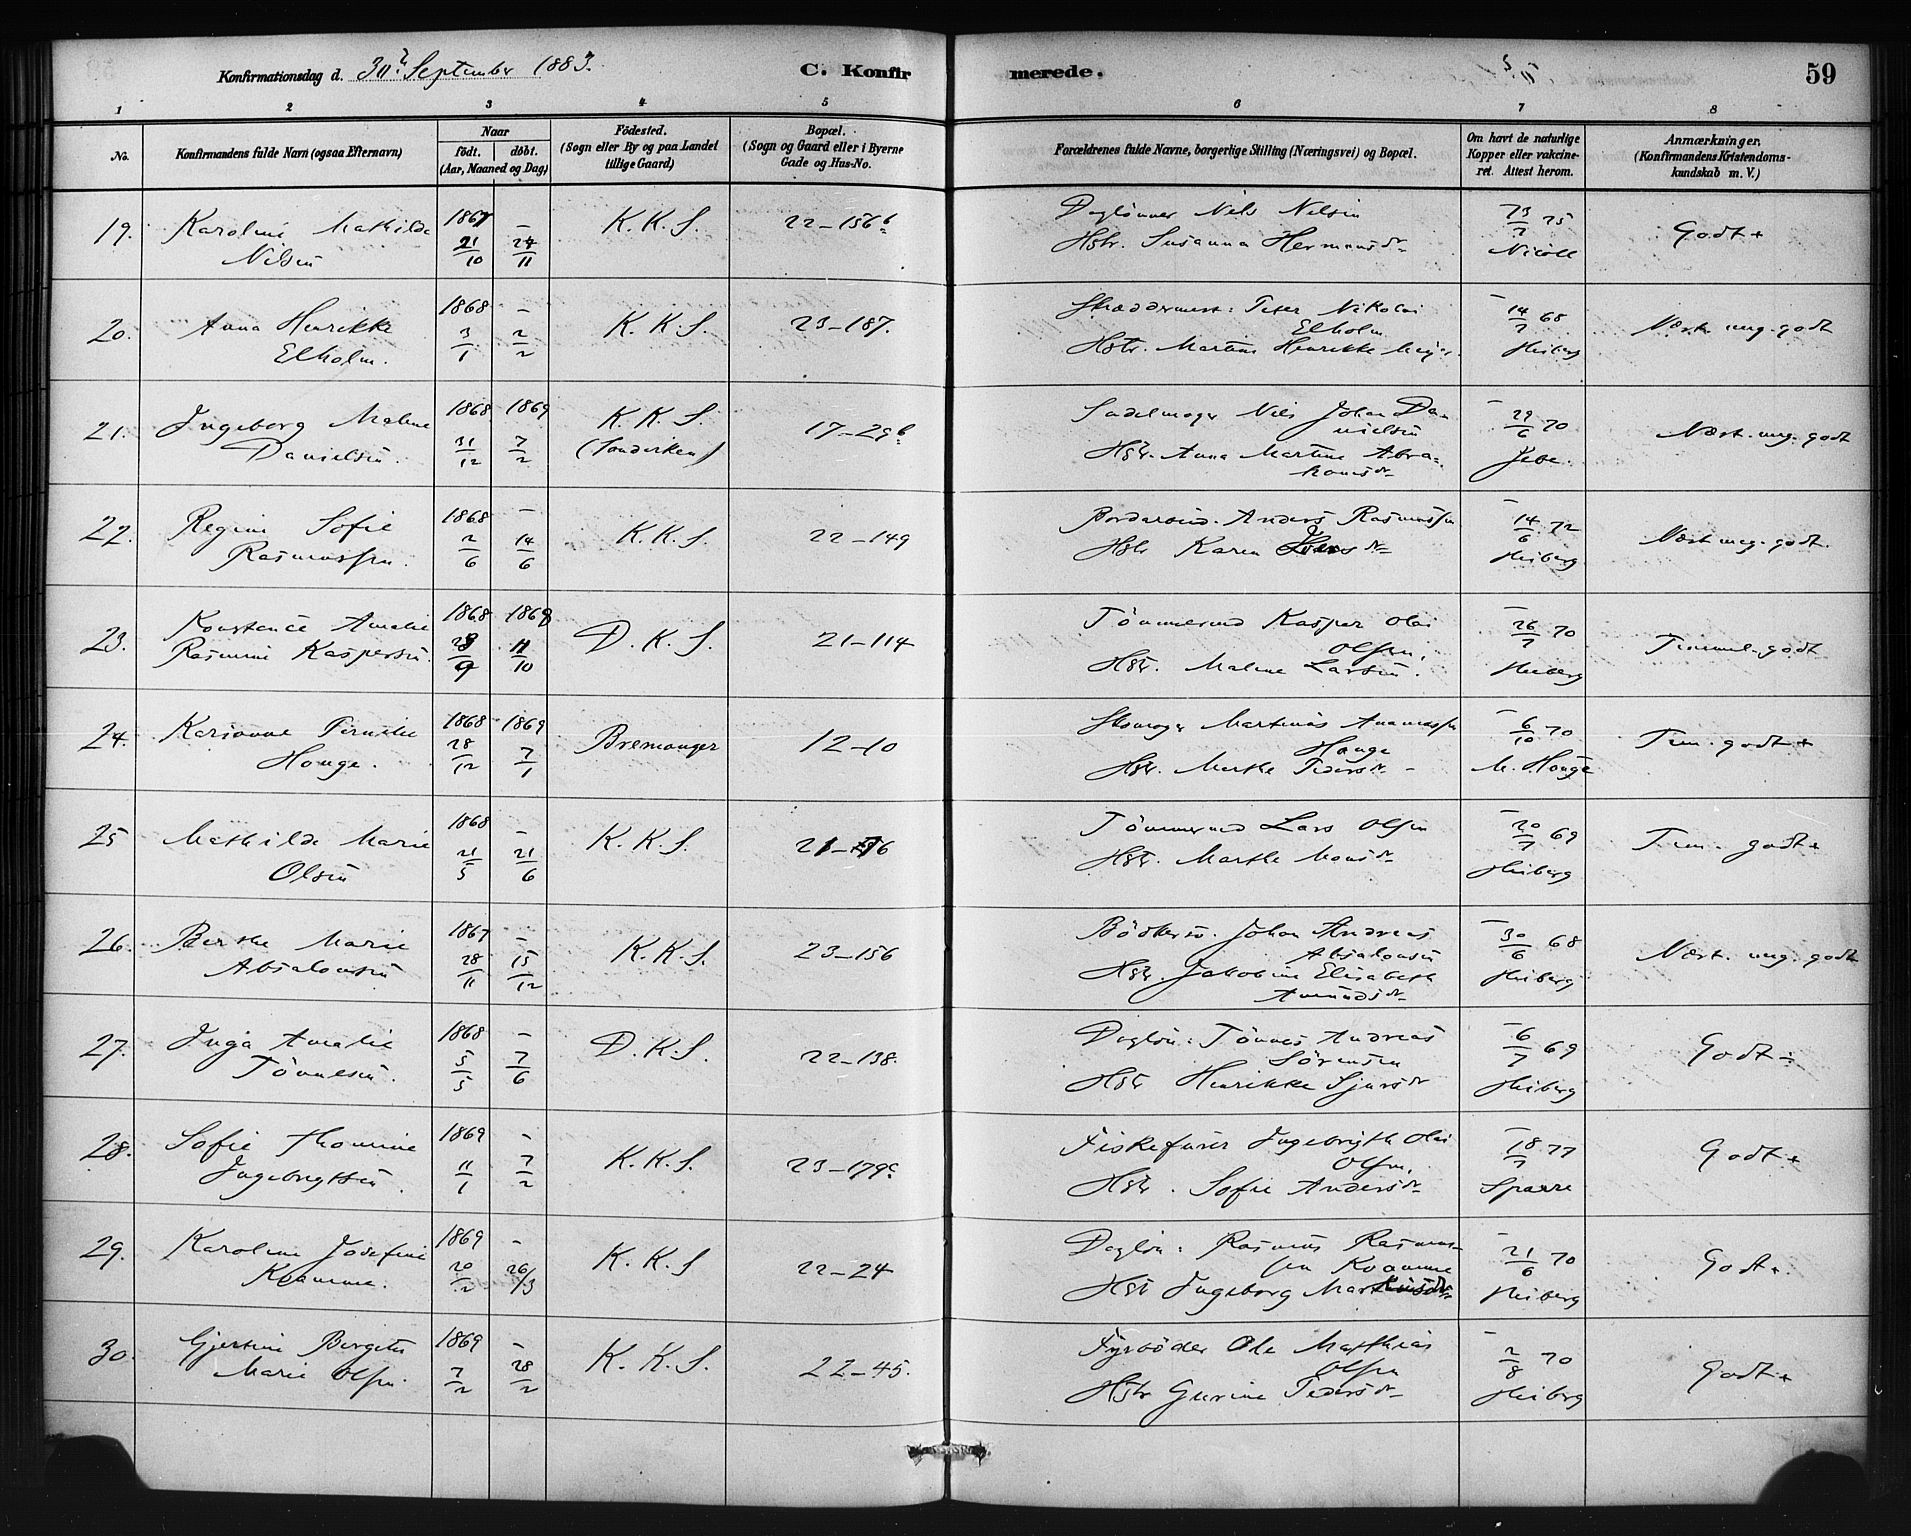 Konfirmationsdag d. 30. September 1883.
C. Konfir
merede.
59
1 2 3 4 5 6 7 8
No.
Konfirmandens fulde Navn (ogsaa Efternavn)
Naar
födt. döbt.
(Aar, Maaned og Dag)
Födested.
(Sogn eller By og paa Landet
tillige Gaard)
Bopæl.
(Sogn og Gaard eller i Byerne
Gade og Hus-No.
Forældrenes fulde Navne, borgerlige Stilling (Næringsvei) og Bopæl.
Om havt de naturlige
Kopper eller vakcine-
ret. Attest herom.
Anmærkninger.
(Konfirmandens Kristendoms-
kundskab m. V.)
19. Karoline Mathilde
Nilsen
1867 –
21/10 24/11
K. K. S.
22–156b
Daglönner Nils Nilsen
Hstr. Susanna Hermansdr
13/7 75
Nicoll
Godt +
20. Anna Henrikke
Elholm.
1868 –
3/1 2/2
K. K. S.
23–187.
Skræddermest: Peter Nikolai
Elholm
Hstr. Martine Henrikke Meyer.
14/7 68
Heiberg
Næst. meg. godt
21. Ingeborg Malene
Danielsen.
1868 1869
31/12 7/2
K. K. S.
17–29b
Sadelmager Nils Johan Da-
nielsen
Hstr. Anna Martine Abra-
hamsdr
29/6 70
Jebe.
Næst. meg. godt
22. Regine Sofie
Rasmussen.
1868 –
2/6 14/6
K. K. S.
22–149
Anders Rasmussen
Hstr Karen
14/6 72
Heiberg
Næst meg. godt.
23. Konstance Amalie
Rasmine Kaspersen.
1868 1868
23/9 11/10
D. K. S.
21–114
Tömmermd Kasper Olai
Olsen.
Hstr. Malene Larsen.
26/7 70
Heiberg
Temmel. godt
24. Karianne Pernilie
Houge.
1868 1869
28/12 7/1
Bremanger
12–10
Skomager Martinus
Houge
Hstr. Marthe Pedersdr –
6/10 70
M. Houge
Tem. godt +
25 Mathilde Marie
Olsen
1868 –
21/5 21/6
K. K. S.
Tömmermd Lars Olsen
Hstr. Marthe Monsdr
20/7 69
Heiberg
Tem. godt +
26. Berthe Marie
Absalonsen
1867 –
28/11 15/12
K. K. S.
23–156
Bödkersv. Johan Andreas
Absalonsen
Hstr. Jakobine Elisabeth
Amundsdr
30/6 68
Heiberg
Næst. meg. godt
27. Inga Amalie
Tönnesen.
1868 –
5/5 7/6
D. K. S.
22–138.
Daglön: Tönnes Andreas
Sörensen
Hstr Henrikke Sjursdr
6/7 69
Heiberg
Godt ÷
28. Sofie Thomine
Ingebrigtsen.
1869 –
11/1 7/2
K. K. S.
23–179c
Fiskeförer Ingebrigth Olai
Olsen.
Hstr. Sofie Andersdr
18/7 77
Sparre
Godt +
29. Karoline Josefine
Kvamme.
1869 –
20/2 26/3
K. K. S
22–24
Daglön: Rasmus Rasmus-
sen Kvamme
Hstr Ingeborg
21/6 70
Heiberg
Godt +
30. Gjertine Bergite
Marie Olsen.
1869 –
7/2 28/2
K. K. S.
22–45.
Fyrböder Ole Matthias
Olsen
Hstr Gurine Pedersdr
2/8 70
Heiberg
Godt +